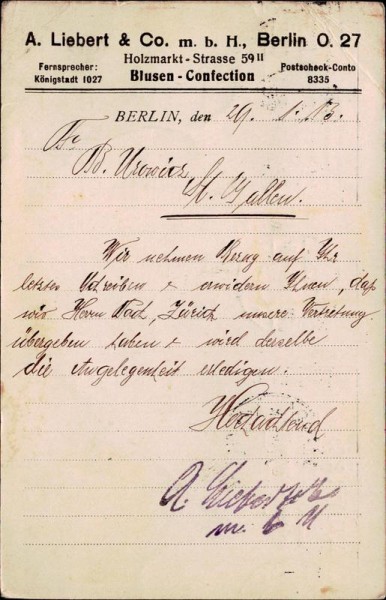 A. Liebert & Co. m. b. H., Berlin O. 27
Holzmarkt - Strasse 59 II
Fernsprecher:
Königstadt 1027
Blusen - Confection
Postscheck-Conto
8335
BERLIN, den 29. 1. 13.
Fr
B. Urowicz
St. Gallen.
Wir nehmen Bezug auf Ihr
letztes Schreiben & erwidern Ihnen, daß
wir Herrn Zürich, unsere Vertretung
übergeben haben & wird derselbe
die Angelegenheit erledigen.
Hochachtend
A. Liebert & Co
m. b. H